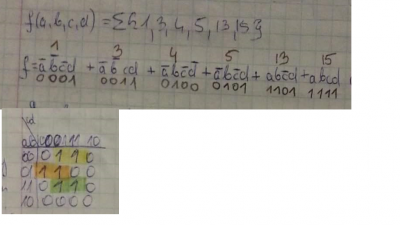 f(a,b,c,d) = Σ{1,3,4,5,13,15}
1 3 4 5 13 15
f = a̅b̅c̅d + a̅b̅cd + a̅bc̅d̅ + a̅bc̅d + abc̅d + abcd
0001 0011 0100 0101 1101 1111
cd
ab 00 01 11 10
00 0 1 1 0
01 1 1 0 0
11 0 1 1 0
10 0 0 0 0